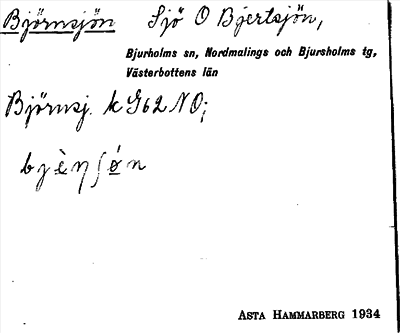 Björnsjön Sjö O Bjertsjön,
Bjurholms sn, Nordmalings och Bjursholms tg,
Västerbottens län
Björnsj. k G62 NO;
bjèŋʃǿn
ASTA HAMMARBERG 1934